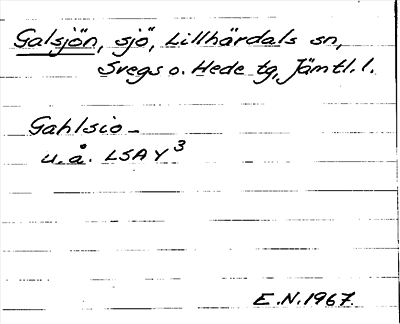 Galsjön, sjö, Lillhärdals sn,
Svegs o. Hede tg, Jämtl. l.
Gahlsio -
u.å. LSA Y3
E.N. 1967.